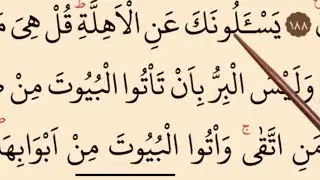 ١٨٨ يَسْـَٔلُونَكَ عَنِ الْاَهِلَّةِ ۖ قُلْ هِىَ مَ
وَلَيْسَ الْبِرُّ بِاَنْ تَاْتُوا الْبُيُوتَ مِنْ
مَنِ اتَّقٰى ۚ وَاْتُوا الْبُيُوتَ مِنْ اَبْوَابِهَا